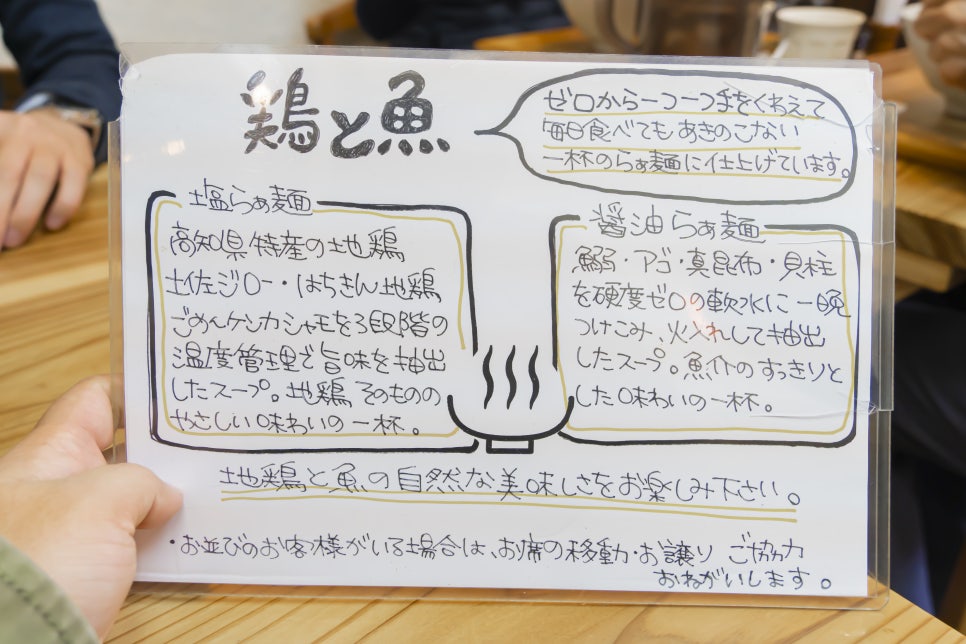 鶏と魚
ゼロから一つ一つまをくわえて
毎日食べてもあきのこない
一杯のらぁ麺に仕上げています。
塩らぁ麺
高知県特産の地鶏
土佐ジロー・はちきん地鶏
ごめんケンカシャモを3段階の
温度管理で旨味を抽出
したスープ。地鶏そのものの
やさしい味わいの一杯。
醤油らぁ麺
鰯・アゴ・真昆布・貝柱
を硬度ゼロの軟水に一晩
つけこみ、火入れして抽出
したスープ。魚介のすっきりと
した味わいの一杯。
地鶏と魚の自然な美味しさをお楽しみ下さい。
・お並びのお客様がいる場合は、お席の移動・お譲り ご協力
おねがいします。